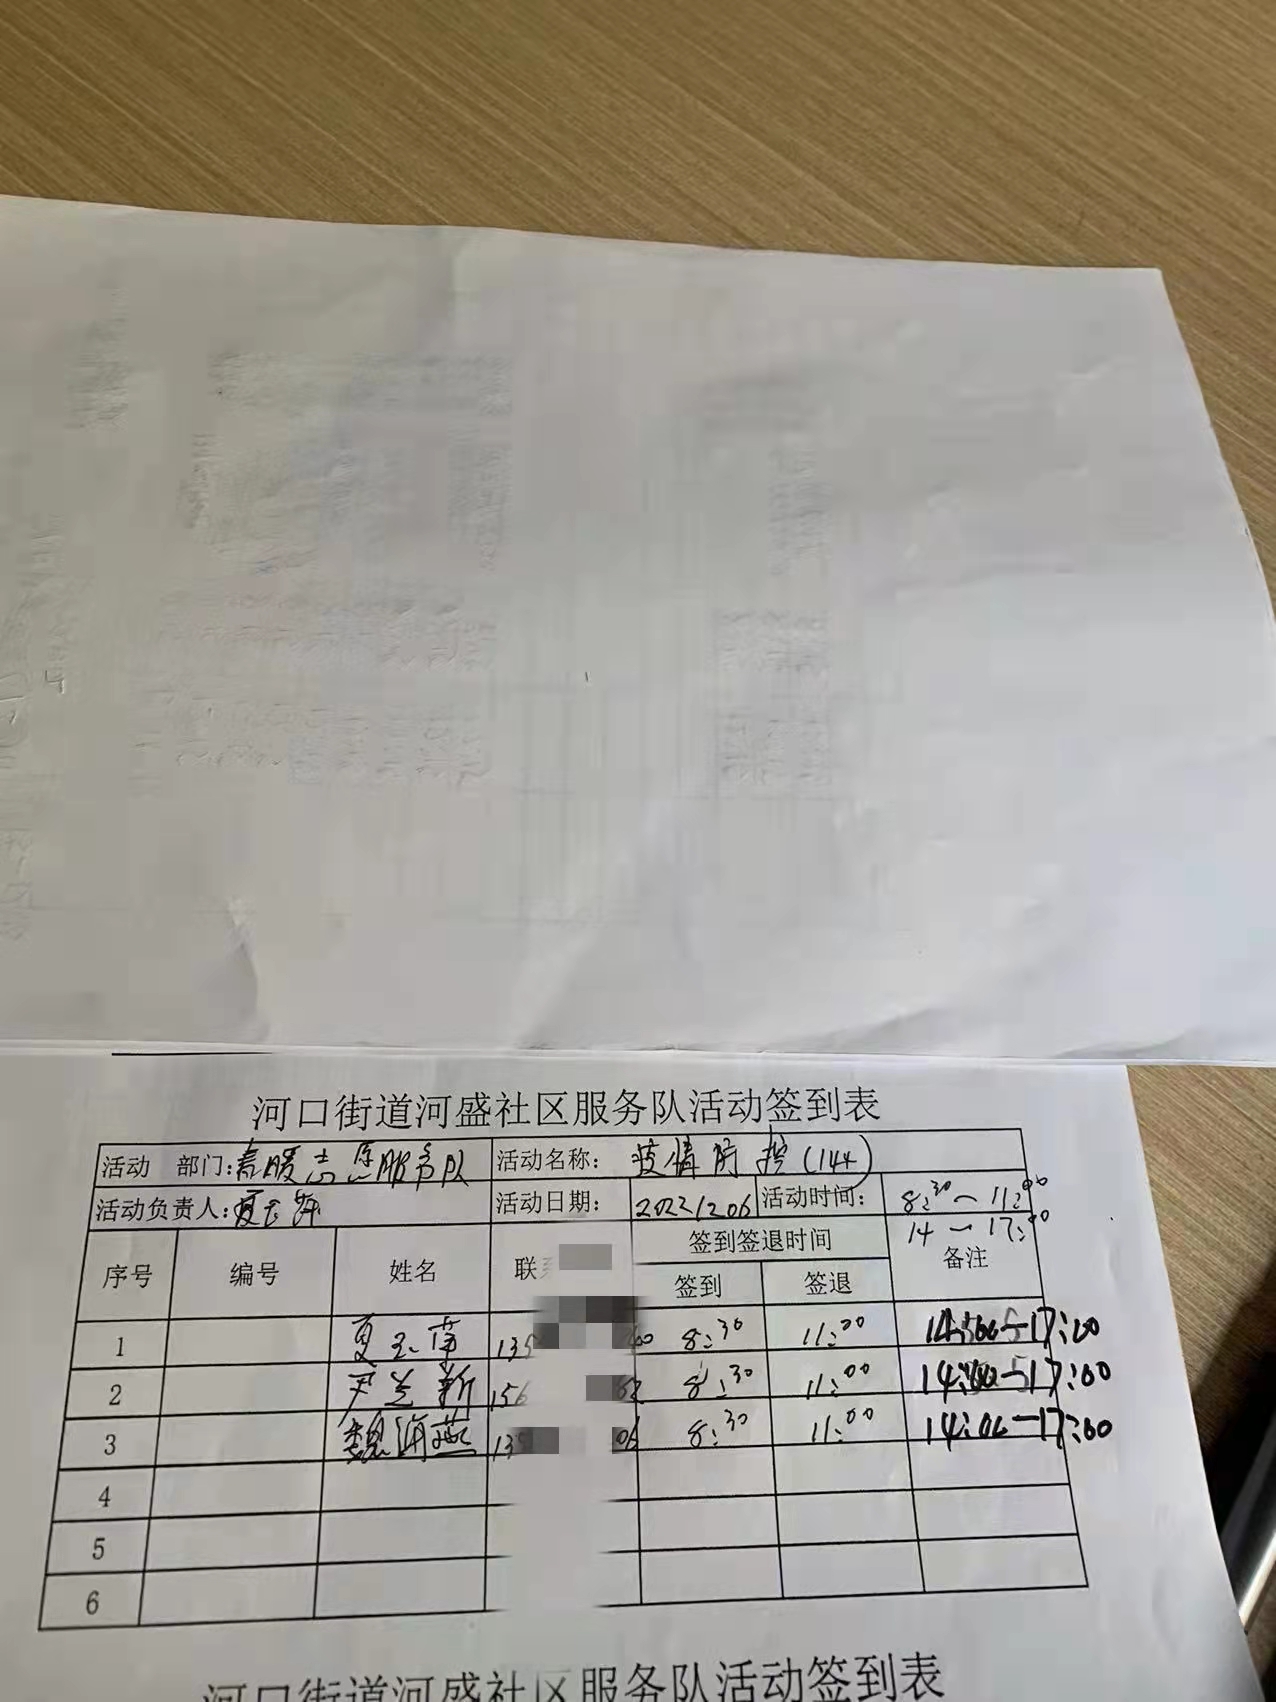 河口街道河盛社区服务队活动签到表
活动 部门: 志愿服务队 活动名称: 疫情防控(144)
活动负责人: 夏玉萍 活动日期: 20221206 活动时间: 8:30一11:00
14一17:00
序号 编号 姓名 联系 签到签退时间 备注
签到 签退
1 夏玉萍 135 8:30 11:00 14:00一17:00
2 尹兰新 156 8:30 11:00 14:00一17:00
3 魏海燕 135 06 8:30 11:00 14:00一17:00
4
5
6
河口街道河盛社区服务队活动签到表